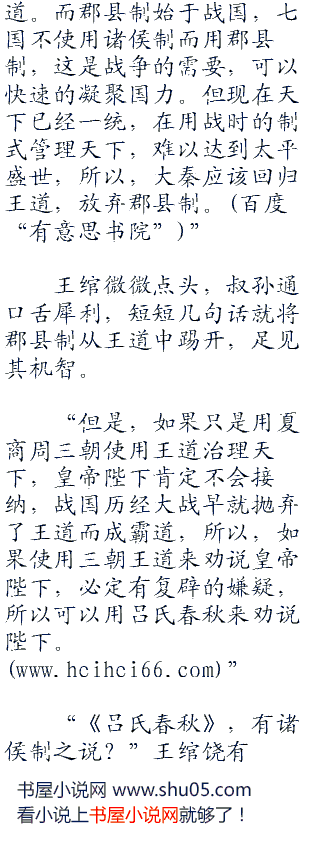 道。而郡县制始于战国，七
国不使用诸侯制而用郡县
制，这是战争的需要，可以
快速的凝聚国力。但现在天
下已经一统，在用战时的制
式管理天下，难以达到太平
盛世，所以，大秦应该回归
王道，放弃郡县制。(百度
“有意思书院”)”
王绾微微点头，叔孙通
口舌犀利，短短几句话就将
郡县制从王道中踢开，足见
其机智。
“但是，如果只是用夏
商周三朝使用王道治理天
下，皇帝陛下肯定不会接
纳，战国历经大战早就抛弃
了王道而成霸道，所以，如
果使用三朝王道来劝说皇帝
陛下，必定有复辟的嫌疑，
所以可以用吕氏春秋来劝说
陛下。
(www.hcihci66.com)”
“《吕氏春秋》，有诸
侯制之说？”王绾饶有
书屋小说网 www.shu05.com
看小说上书屋小说网就够了！